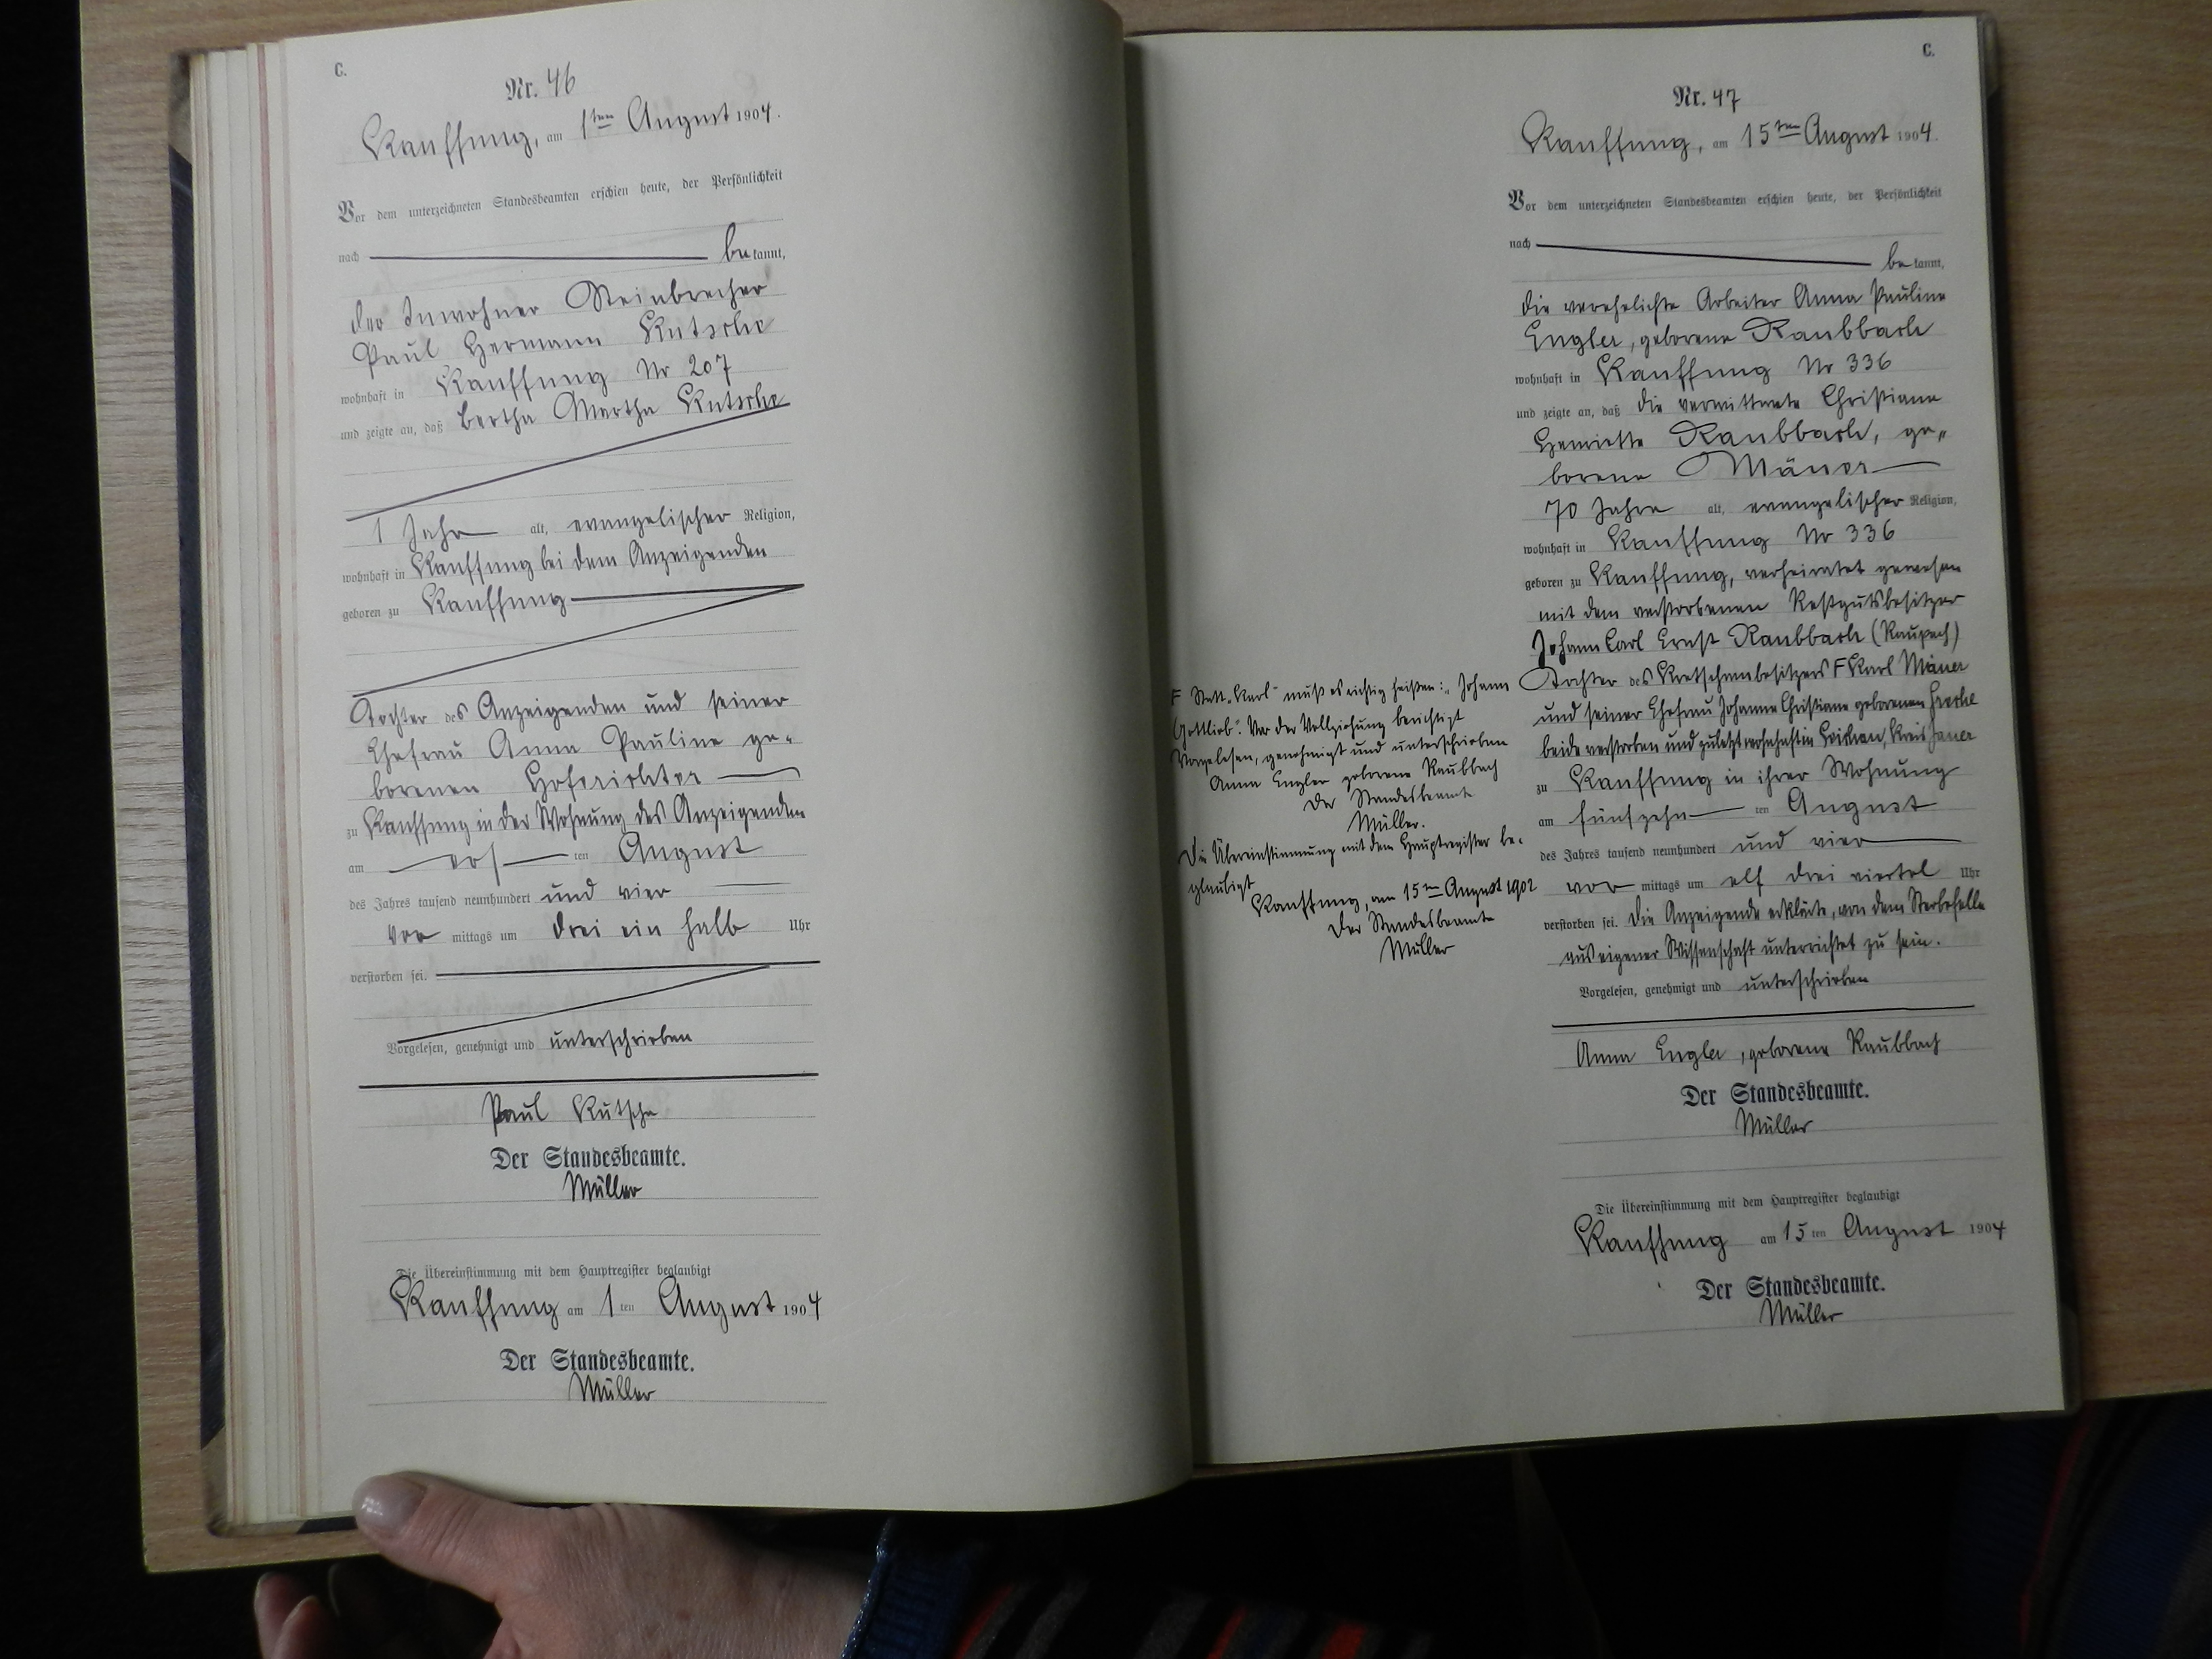 C.
Nr. 46
Kauffung, am 1ten August 1904.
Vor dem unterzeichneten Standesbeamten erschien heute, der Persönlichkeit
nach be kannt,
der Inwohner Steinbrecher
Paul Hermann Kutsche
wohnhaft in Kauffung Nr 207
und zeigte an, daß Bertha Martha Kutsche
1 Jahr alt, evangelischer Religion,
wohnhaft in Kauffung bei dem Anzeigenden
geboren zu Kauffung
Tochter des Anzeigenden und seiner
Ehefrau Anna Pauline ge-
borenen Hoferichter
zu Kauffung in der Wohnung des Anzeigenden
am ers ten August
des Jahres tausend neunhundert und vier
vor mittags um drei ein halb Uhr
verstorben sei.
Vorgelesen, genehmigt und unterschrieben
Paul Kutsche
Der Standesbeamte.
Müller
Die Übereinstimmung mit dem Hauptregister beglaubigt
Kauffung am 1 ten August 1904
Der Standesbeamte.
Müller
C.
Nr. 47
Kauffung, am 15ten August 1904.
Vor dem unterzeichneten Standesbeamten erschien heute, der Persönlichkeit
nach be kannt,
die verehelichte Arbeiter Anna Pauline
Engler, geborene Raubbach
wohnhaft in Kauffung Nr 336
und zeigte an, daß die verwittwete Christiane
Henriette Raubbach, ge-
borene Mäuer
70 Jahre alt, evangelischer Religion,
wohnhaft in Kauffung Nr 336
geboren zu Kauffung, verheiratet gewesen
mit dem verstorbenen Restgutsbesitzer
Johann Carl Ernst Raubbach (Raupach)
Tochter des Kretschambesitzers F Karl Mäuer
und seiner Ehefrau Johanne Christiane geborenen
beide verstorben und zuletzt wohnhaft in Kreis Jauer
zu Kauffung in ihrer Wohnung
am fünfzehn ten August
des Jahres tausend neunhundert und vier
vor mittags um elf drei viertel Uhr
verstorben sei. Die Anzeigende erklärte, von dem Sterbefalle
aus eigener Wissenschaft unterrichtet zu sein.
Vorgelesen, genehmigt und unterschrieben
Anna Engler, geborene Raubbach
Der Standesbeamte.
Müller
Die Übereinstimmung mit dem Hauptregister beglaubigt
Kauffung am 15 ten August 1904
Der Standesbeamte.
Müller
F Statt „Karl" muß es richtig heißen: „Johann
Gottlieb". Vor der Vollziehung berichtigt
Vorgelesen, genehmigt und unterschrieben
Anna Engler geborene Raubbach
Der Standesbeamte
Müller.
Die Übereinstimmung mit dem Hauptregister be-
glaubigt
Kauffung, am 15ten August 1902
Der Standesbeamte
Müller